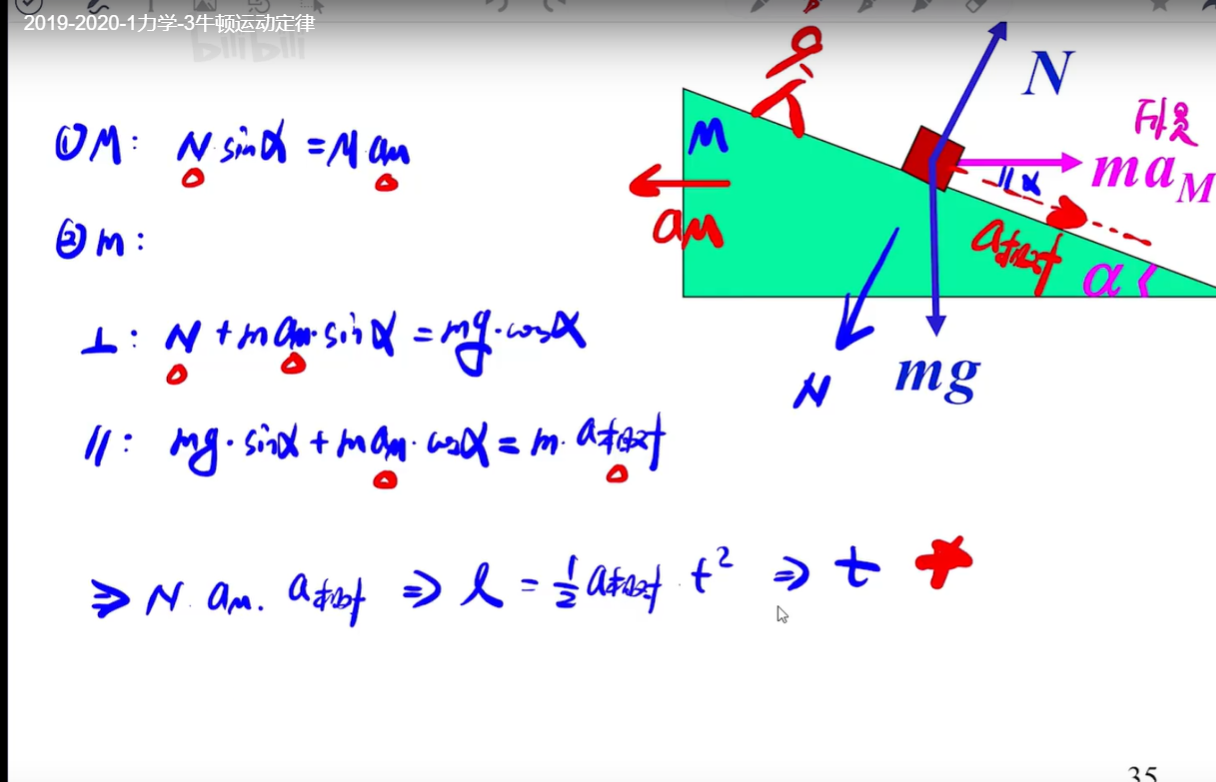 2019-2020-1力学-3牛顿运动定律
bilibili
① M: N sinα = M a_M
② m:
⊥: N + m a_M · sinα = mg · cosα
//: mg · sinα + m a_M · cosα = m · a相对
⇒ N. a_M. a相对 ⇒ l = 1/2 a相对 · t² ⇒ t
N
M
ma_M
a_M
α
a相对
α
N
mg
35